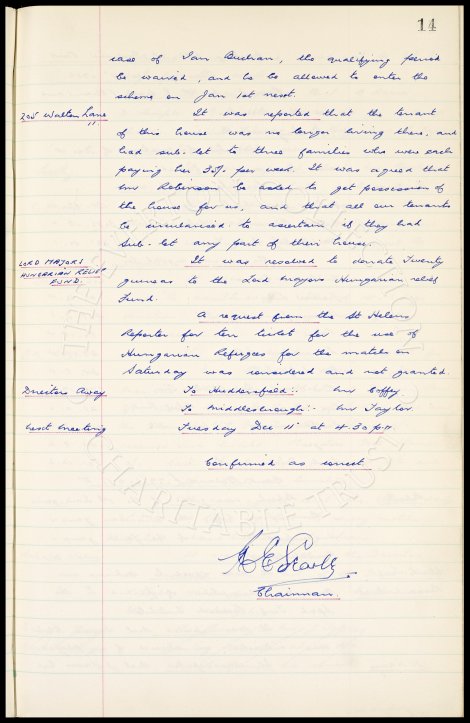 14
case of Ian Buchan, the qualifying period
be waived, and he be allowed to enter the
scheme on Jan 1st next.
205 Walton Lane
It was reported that the tenant
of this house was no longer living there, and
had sub-let to three families who were each
paying her 35/- per week. It was agreed that
Mr Robinson be asked to get possession of
the house for us, and that all our tenants
be circularised to ascertain if they had
Sub-let any part of their house.
LORD MAYORS
HUNGARIAN RELIEF
FUND.
It was resolved to donate Twenty
guineas to the Lord Mayors Hungarian relief
Fund.
A request from the St Helens
Reporter for ten tickets for the use of
Hungarian Refugees for the match on
Saturday was considered and not granted.
Directors Away
To Huddersfield:- Mr Coffey
To Middlesbrough:- Mr Taylor
Next Meeting
Tuesday Dec 11th at 4.30 p.m.
Confirmed as correct.
Chairman.
CHARITABLE TRUST